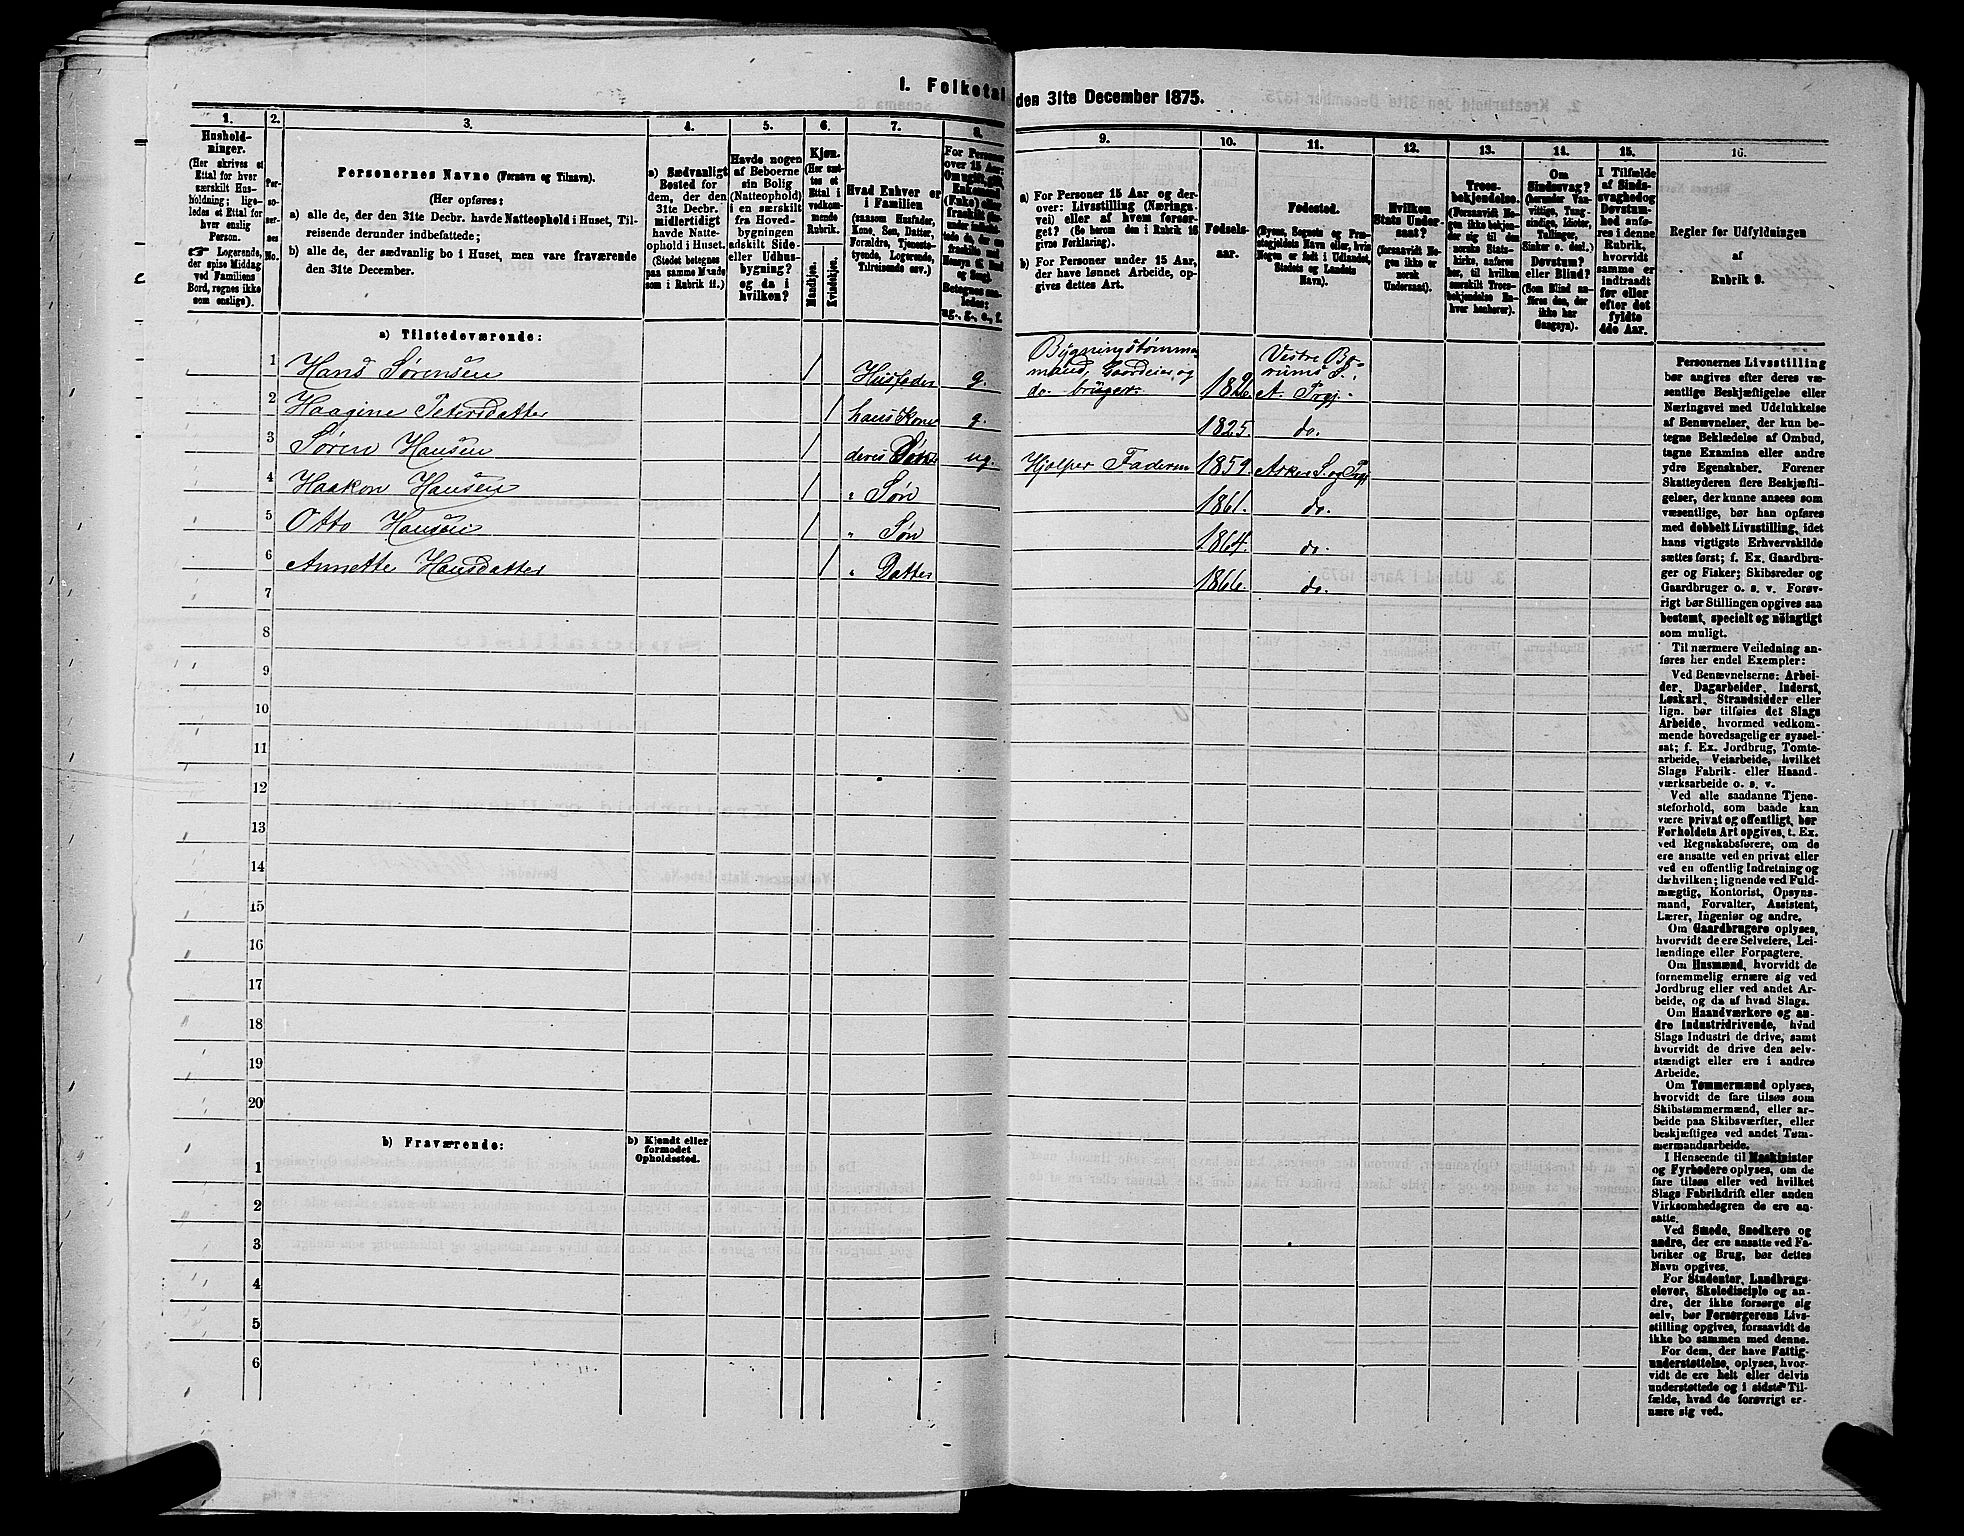 1. Folketal den 31te December 1875.
1. 2. 3. 4. 5. 6. 7. 8. 9. 10. 11. 12. 13. 14. 15. 16.
Hushold-
ninger.
(Her skrives et
Ettal for hver
særskilt Hus-
holdning; lige-
ledes et Ettal for
hver enslig
Person.
☞ Logerende,
der spise Middag
ved Familiens
Bord, regnes ikke
som enslige).
Per-
so-
ner-
nes
No.
Personernes Navne (Fornavn og Tilnavn).
(Her opføres:
a) alle de, der den 31te Decbr. havde Natteophold i Huset, Til-
reisende derunder indbefattede;
b) alle de, der sædvanlig bo i Huset, men vare fraværende
den 31te December.
a) Sædvanligt
Bosted for
dem, der den
31te Decbr.
midlertidigt
havde Natte-
ophold i Huset.
(Stedet betegnes
paa samme Maade
som i Rubrik 11.)
Havde nogen
af Beboerne
sin Bolig
(Natteophold)
i en særskilt
fra Hoved-
bygningen
adskilt Side-
eller Udhus-
bygning?
og da i
hvilken?
Kjøn.
(Her sæt-
tes et
Ettal i
vedkom-
mende
Rubrik.
Mandkjøn.
Kvindekjøn.
Hvad Enhver er
i Familien
(saasom Husfader,
Kone, Søn, Datter,
Forældre, Tjeneste-
tyende, Logerende,
Tilreisende osv.)
For Personer
over 15 Aar:
Om ugift, gift,
Betegnes saa-
ledes:
ug., g., e., f.
a) For Personer 15 Aar og der-
over: Livsstilling (Nærings-
vei) eller af hvem forsør-
get? (Se herom den i Rubrik 16
givne Forklaring).
b) For Personer under 15 Aar,
der have lønnet Arbeide, op-
gives dettes Art.
Fødsels-
aar.
Fødested.
(Byens, Sognets og Præ-
stegjeldets Navn eller, hvis
Nogen er født i Udlandet,
Stedets og Landets
Navn).
Hvilken
Stats Under-
saat?
(forsaavidt No-
gen ikke er
norsk
Undersaat).
Troes-
bekjendelse.
(Forsaavidt No-
gen ikke bekjen-
der sig til den
norske Stats-
kirke, anføres
her, til hvilken
særskilt Troes-
bekjendelse En-
hver henhører).
Om
Sindssvag?
(herunder Van-
vittige, Tung-
sindige, Idioter,
Tullinger,
Sinker o. desl.)
Døvstum?
eller Blind?
(Som Blind an-
føres den, der
ikke har
Gangsyn).
I Tilfælde
af Sinds-
svaghed og
Døvstum-
hed anfø-
res i denne
Rubrik,
hvorvidt
samme er
indtraadt
før eller
efter det
fyldte
4de Aar.
Regler for Udfyldningen
af
Rubrik 9.
a) Tilstedeværende:
1 Hans Sørensen 1 Husfader g. Bygningstømmer-
mand, Gaardeier og
do- bruger. 1826. Vestre Bæ-
rums S.
A. Prgj.
2 Haagine Petersdatter 1 hans Kone g. 1825. do.
3 Søren Hansen 1 deres Søn ug. Hjelper Faderen 1859. Asker S. og Prgj.
4 Haakon Hansen 1 " Søn 1861. do.
5 Otto Hansen 1 " Søn 1864. do.
6 Annette Hansdatter 1 " Datter 1866. do.
7
8
9
10
11
12
13
14
15
16
17
18
19
20
b) Fraværende:
b) Kjendt eller
formodet
Opholdssted.
1
2
3
4
5
6
Personernes Livsstilling
bør angives efter deres væ-
sentlige Beskjæftigelse eller
Næringsvei med Udelukkelse
af Benævnelser, der kun be-
tegne Beklædelse af Ombud,
tagne Examina eller andre
ydre Egenskaber. Forener
Skatteyderen flere Beskjæfti-
gelser, der kunne ansees som
væsentlige, bør han opføres
med dobbelt Livsstilling, idet
hans vigtigste Erhvervskilde
sættes først; f. Ex. Gaardbru-
ger og Fisker; Skibsreder og
Gaardbruger o. s. v. Forøv-
rigt bør Stillingen opgives saa
bestemt, specielt og nøiagtigt
som muligt.
Til nærmere Veiledning an-
føres her endel Exempler:
Ved Benævnelserne: Arbei-
der, Dagarbeider, Inderst,
Løskarl, Strandsidder eller
lign. bør tilføies det Slags
Arbeide, hvormed vedkom-
mende hovedsagelig er syssel-
sat; f. Ex. Jordbrug, Tomte-
arbeide, Veiarbeide, hvilket
Slags Fabrik- eller Haand-
værksarbeide o. s. v.
Ved alle saadanne Tjene-
steforhold, som baade kan
være privat og offentligt, bør
Forholdets Art opgives, t. Ex.
ved Regnskabsførere, om de
ere ansatte ved en privat eller
ved en offentlig Indretning og
da hvilken; lignende ved Fuld-
mægtig, Kontorist, Opsyns-
mand, Forvalter, Assistent,
Lærer, Ingeniør og andre.
Om Gaardbrugere oplyses,
hvorvidt de ere Selveiere, Lei-
lændinge eller Forpagtere.
Om Husmænd, hvorvidt de
fornemmelig ernære sig ved
Jordbrug eller ved andet Ar-
beide, og da af hvad Slags.
Om Haandværkere og an-
dre Industridrivende, hvad
Slags Industri de drive, samt
hvorvidt de drive den selv-
stændigt eller ere i andres
Arbeide.
Om Tømmermænd oplyses,
hvorvidt de fare tilsøs som
Skibstømmermænd, eller ar-
beide paa Skibsværfter, eller
beskjæftiges ved andet Tøm-
mermandsarbeide.
I Henseende til Maskinister
og Fyrbødere oplyses, om de
fare tilsøs eller ved hvilket
Slags Fabrikdrift eller anden
Virksomhedsgren de ere an-
satte.
Ved Smede, Snedkere og
andre, der ere ansatte ved Fa-
briker og Brug, bør dettes
Navn opgives.
For Studenter, Landbrugs-
elever, Skoledisciple og an-
dre, der ikke forsørge sig
selv, bør Forsørgerens Livs-
stilling opgives, forsaavidt de
ikke bo sammen med denne.
For dem, der have Fattig-
understøttelse, oplyses, hvor-
vidt de ere helt eller delvis
understøttede og i sidste Til-
fælde, hvad de forøvrigt er-
nære sig ved.